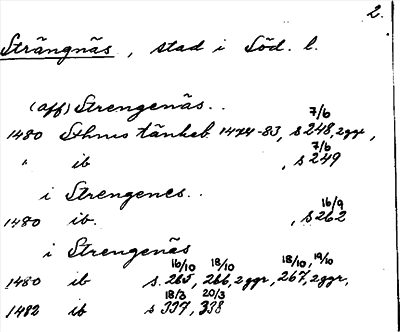 2.
Strängnäs, stad i Söd. l.
(aff) Strengenäs..
7/6
1480 Sthms tänkeb. 1474-83, s 248, 2 ggr,
7/6
" ib , s 249
i Strengenes..
16/9
1480 ib. , s 262
i Strengenäs
16/10 18/10 18/10, 19/10
1480 ib s. 265, 266, 2 ggr, 267, 2 ggr,
18/3 20/3
1482 ib s 337, 338